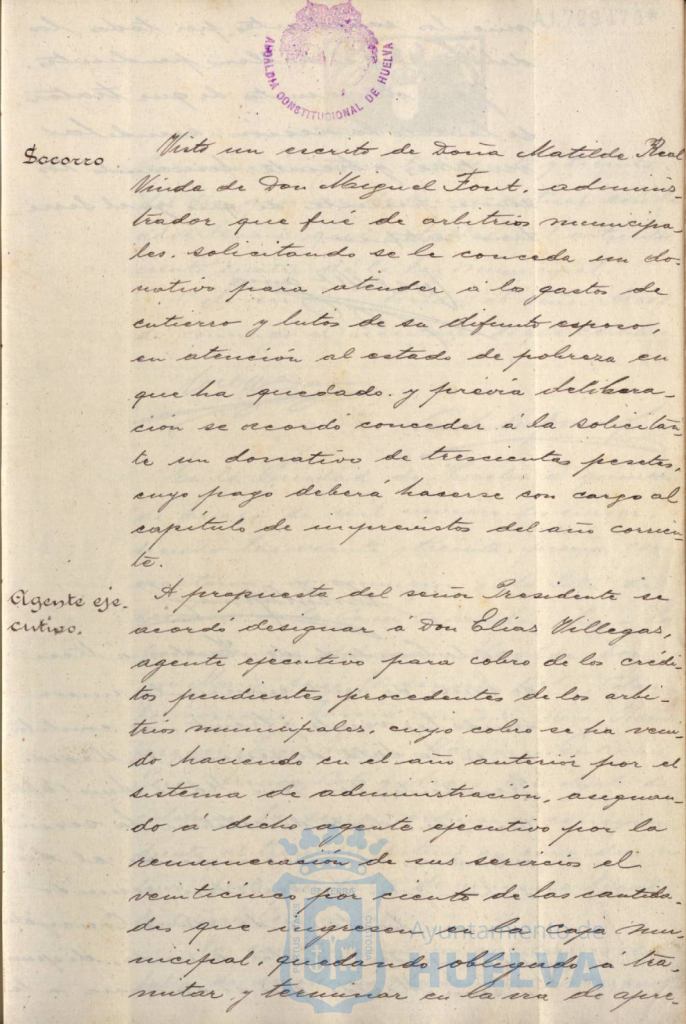 ALCALDIA CONSTITUCIONAL DE HUELVA
Socorro
Visto un escrito de Doña Matilde Real
Viuda de Don Miguel Font, adminis-
trador que fué de arbitrios municipa-
les, solicitando se le conceda un do-
nativo para atender á los gastos de
entierro y lutos de su difunto esposo,
en atención al estado de pobreza en
que ha quedado, y prévia delibera-
ción se acordó conceder á la solicitan-
te un donativo de trescientas pesetas,
cuyo pago deberá hacerse con cargo al
capítulo de imprevistos del año corrien-
te.
Agente eje-
cutivo.
A propuesta del señor Presidente se
acordó designar á Don Elías Villegas,
agente ejecutivo para cobro de los crédi-
tos pendientes procedentes de los arbi-
trios municipales, cuyo cobro se ha veni-
do haciendo en el año anterior por el
sistema de administración, asignan-
do á dicho agente ejecutivo por la
remuneración de sus servicios el
veinticinco por ciento de las cantida-
des que ingresen en la caja mu-
nicipal, quedando obligado á tra-
mitar y terminar en la vía de apre-
Ayuntamiento de
HUELVA